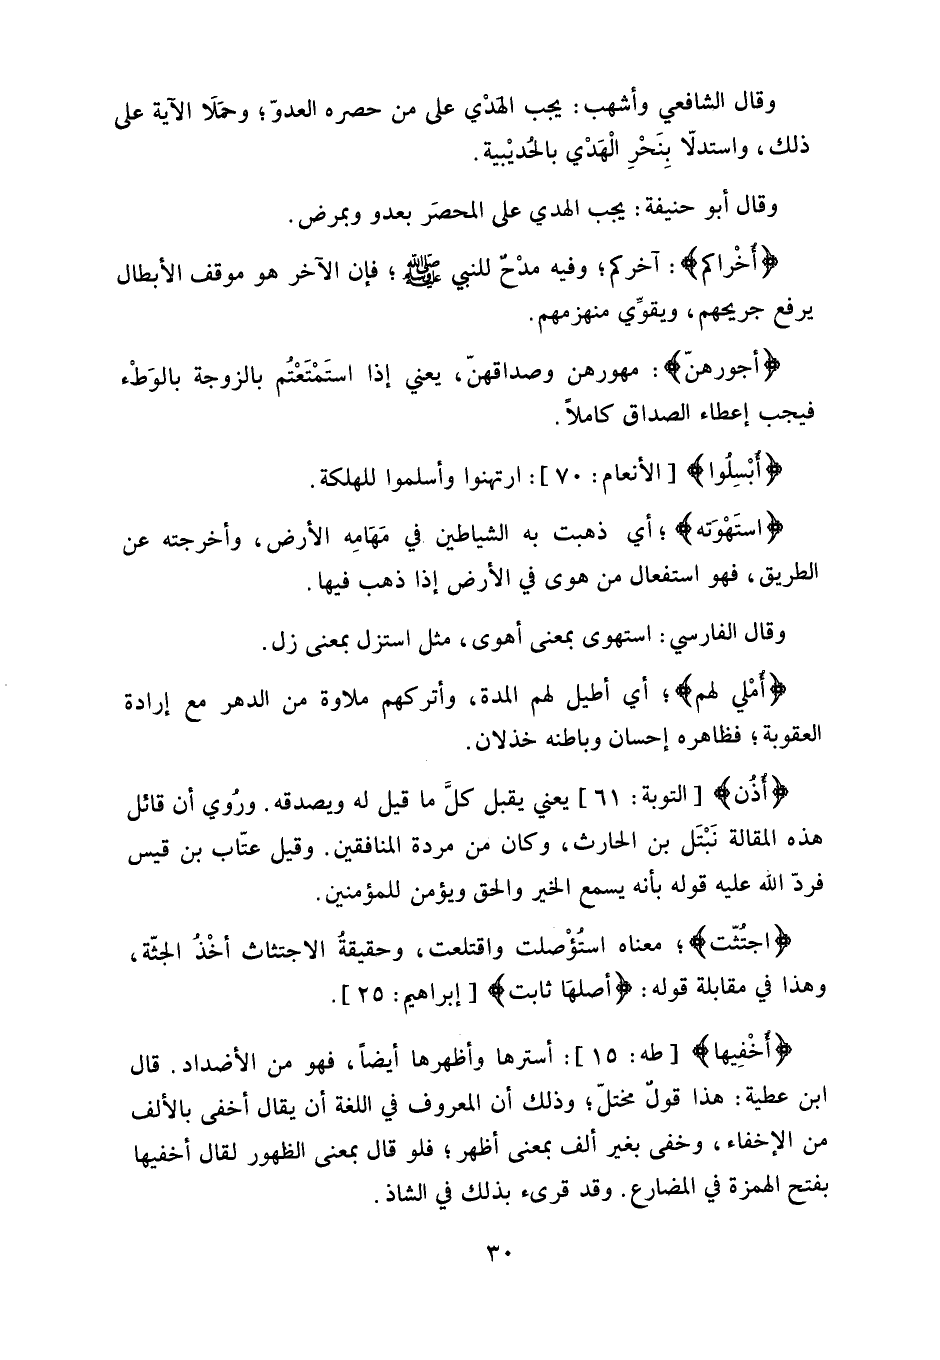 وقال الشافعي وأشهب: يجب الهَدْي على من حصره العدوّ؛ وحمَلَا الآية على
ذلك، واستدلّا بِنَحْرِ الْهَدْي بالحُديْبية.
وقال أبو حنيفة: يجب الهدي على المحصَر بعدو وبمرض.
﴿أُخْراكم﴾: آخركم؛ وفيه مدْحٌ للنبي ﷺ؛ فإن الآخر هو موقف الأبطال
يرفع جريحهم، ويقوِّي منهزمهم.
﴿أجورهنّ﴾: مهورهن وصداقهنّ، يعني إذا استَمْتَعْتُم بالزوجة بالوَطْء
فيجب إعطاء الصداق كاملاً.
﴿أُبْسِلُوا﴾ [الأنعام: ٧٠]: ارتهنوا وأسلموا للهلكة.
﴿استَهْوَته﴾؛ أي ذهبت به الشياطين في مَهَامِه الأرض، وأخرجته عن
الطريق، فهو استفعال من هوى في الأرض إذا ذهب فيها.
وقال الفارسي: استهوى بمعنى أهوى، مثل استزل بمعنى زل.
﴿أُمْلي لهم﴾؛ أي أطيل لهم المدة، وأتركهم ملاوة من الدهر مع إرادة
العقوبة؛ فظاهره إحسان وباطنه خذلان.
﴿أُذُن﴾ [التوبة: ٦١] يعني يقبل كلَّ ما قيل له ويصدقه. ورُوي أن قائل
هذه المقالة نَبْتَل بن الحارث، وكان من مردة المنافقين. وقيل عتّاب بن قيس
فردّ الله عليه قوله بأنه يسمع الخير والحق ويؤمن للمؤمنين.
﴿اجتُثّت﴾؛ معناه استُؤْصلت واقتلعت، وحقيقةُ الاجتثاث أخْذُ الجثّة،
وهذا في مقابلة قوله: ﴿أصلهَا ثابت﴾ [إبراهيم: ٢٥].
﴿أُخْفِيها﴾ [طه: ١٥]: أسترها وأظهرها أيضاً، فهو من الأضداد. قال
ابن عطية: هذا قولٌ مختلّ؛ وذلك أن المعروف في اللغة أن يقال أخفى بالألف
من الإخفاء، وخفى بغير ألف بمعنى أظهر؛ فلو قال بمعنى الظهور لقال أخفيها
بفتح الهمزة في المضارع. وقد قرىء بذلك في الشاذ.
٣٠